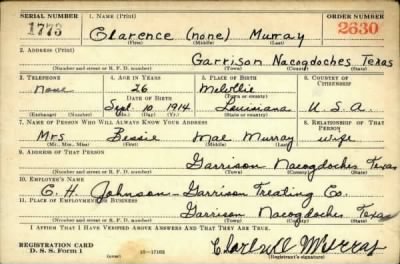 SERIAL NUMBER 1. NAME (Print) ORDER NUMBER
1773 Clarence (none) Murray 2630
(First) (Middle) (Last)
2. ADDRESS (Print)
Garrison Nacogdoches Texas
(Number and street or R. F. D. number) (Town) (County) (State)
3. TELEPHONE 4. AGE IN YEARS 5. PLACE OF BIRTH 6. COUNTRY OF CITIZENSHIP
none 26 Melville
DATE OF BIRTH (Town or county)
Sept. 10, 1914 Louisiana U. S. A.
(Exchange) (Number) (Mo.) (Day) (Yr.) (State or country)
7. NAME OF PERSON WHO WILL ALWAYS KNOW YOUR ADDRESS 8. RELATIONSHIP OF THAT PERSON
Mrs Bessie Mae Murray wife
(Mr., Mrs., Miss) (First) (Middle) (Last)
9. ADDRESS OF THAT PERSON
Garrison Nacogdoches Texas
(Number and street or R. F. D. number) (Town) (County) (State)
10. EMPLOYER'S NAME
Johnson - Garrison Treating Co.
11. PLACE OF EMPLOYMENT OR BUSINESS
Garrison Nacogdoches Texas
(Number and street or R. F. D. number) (Town) (County) (State)
I AFFIRM THAT I HAVE VERIFIED ABOVE ANSWERS AND THAT THEY ARE TRUE.
REGISTRATION CARD
D. S. S. Form 1 (over) Murray
(Registrant's signature)